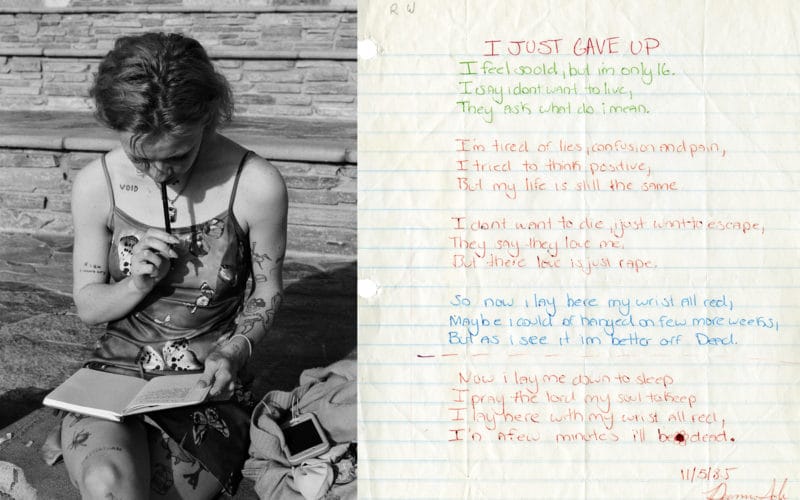 VOID
R W
I JUST GAVE UP
I feel so old, but im only 16.
I say i dont want to live,
They ask what do i mean.
I'm tired of lies, confusion and pain,
I tried to think positive,
But my life is still the same.
I dont want to die, just want to escape,
They say they love me,
But there love is just rape.
So now i lay here my wrist all red,
Maybe i could of hanged on few more weeks,
But As i see it im better off Dead.
Now i lay me down to sleep
I pray the lord my soul to keep
I lay here with my wrist all red,
I'n a few minutes i'll be dead.
11/5/85